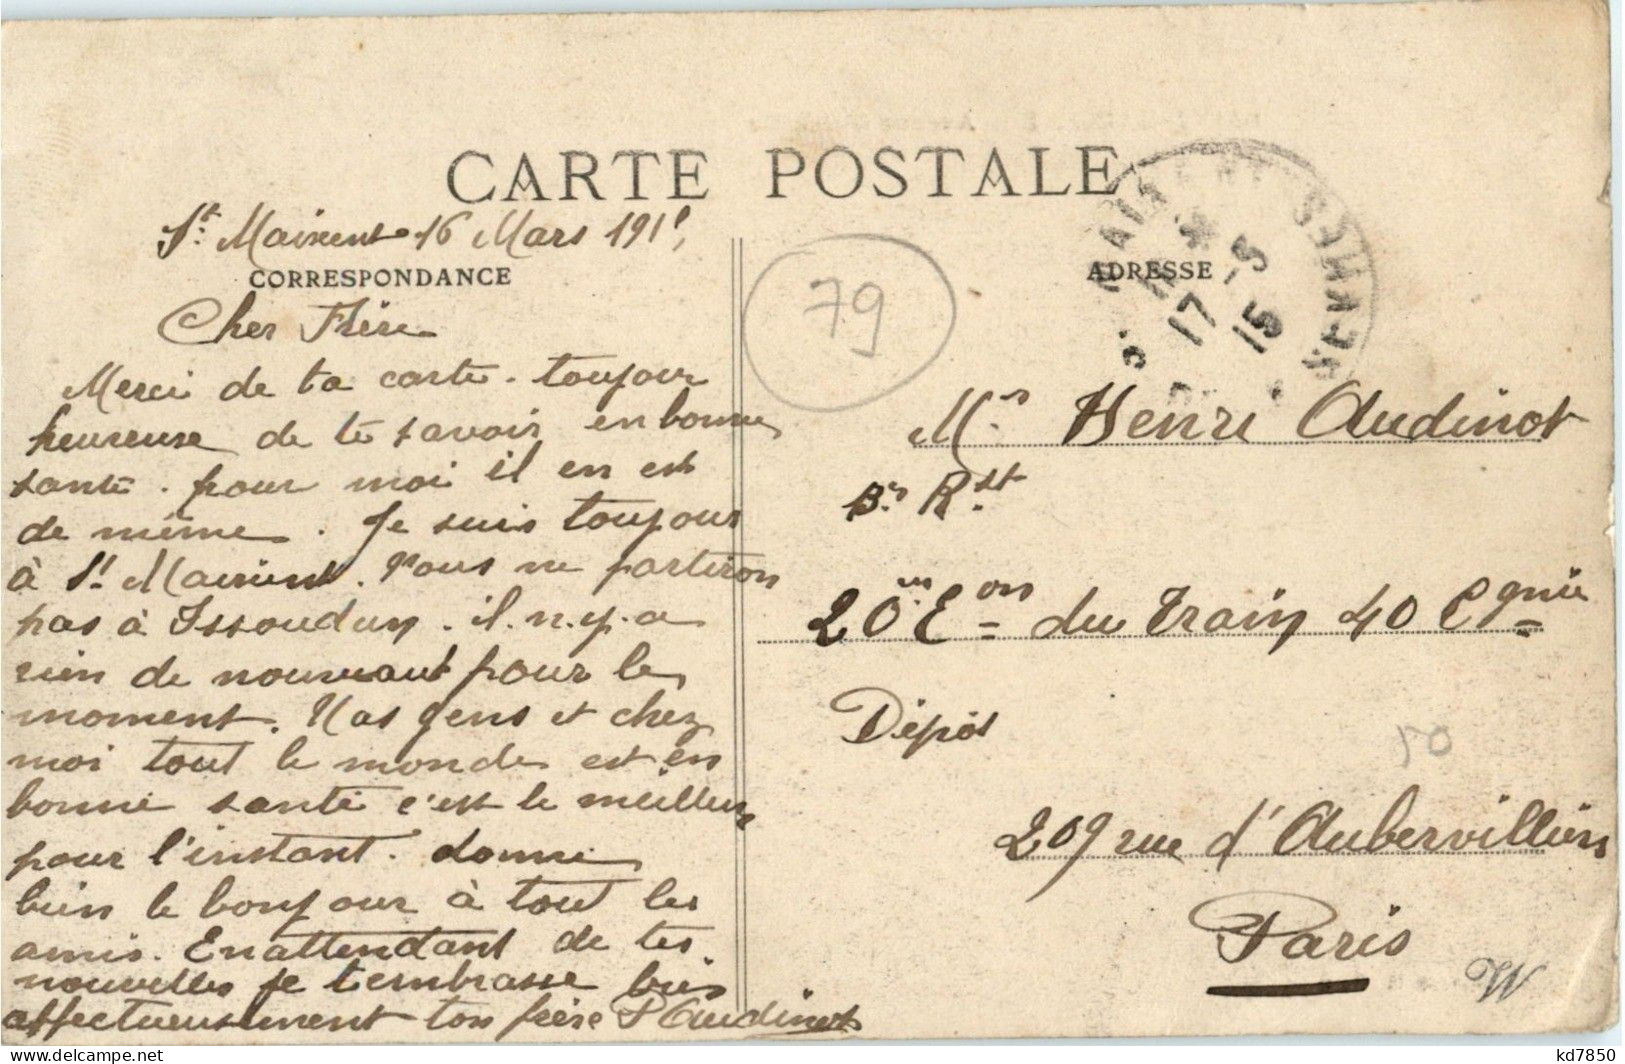 CARTE POSTALE
St. Maixent 16 Mars 1915
CORRESPONDANCE
Cher Frère
Merci de ta carte. toujour
heureuse de te savoir en bonne
santé. pour moi il en est
de même. Je suis toujour
à St Maixent. Nous ne partiron
pas à Issoudun. il.n.y.a
rien de nouveaut pour le
moment. Nas gens et chez
moi tout le monde est en
bonne santé c'est le meilleur
pour l'instant. donne
bien le bonjour à tout les
amis. En attendant de tes
nouvelles je t'embrasse bien
affectueusement ton frère P Audinot
79
ADRESSE
17 -3
15
SEVRES
Mr. Henri Audinot
Br. Rst
20em Eon du Train 40 Cgnie
Dépot
50
209 rue d'Aubervilliers
Paris
W
kd7850